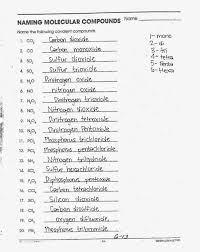 NAMING MOLECULAR COMPOUNDS Name
Name the following covalent compounds.
1- mono
2- di
3- tri
4- tetra
5- penta
6- Hexa
1. CO₂ Carbon dioxide
2. CO Carbon monoxide
3. SO₂ Sulfur dioxide
4. SO₃ Sulfur trioxide
5. N₂O Dinitrogen oxide
6. Nitrogen
7. N₂O₃ Dinitrogen trioxide
8. Dinitrogen tetroxide
9. N₂O₅ Dinitrogen Pentoxide
10. PCl₃ Phosphorus trichloride
11. PCl₅ Phosphorus pentachloride
12. NH₃ Nitrogen trihydride
13. SCl₆ Sulfur hexachloride
14. P₂O₅ Diphosphorus pentoxide
15. CCl₄ Carbon tetrachloride
16. SiO₂ Silicon dioxide
17. CS₂ Carbon disulfide
18. OF₂ oxygen difluoride
19. PBr₃ Phosphorus tribromide
20.